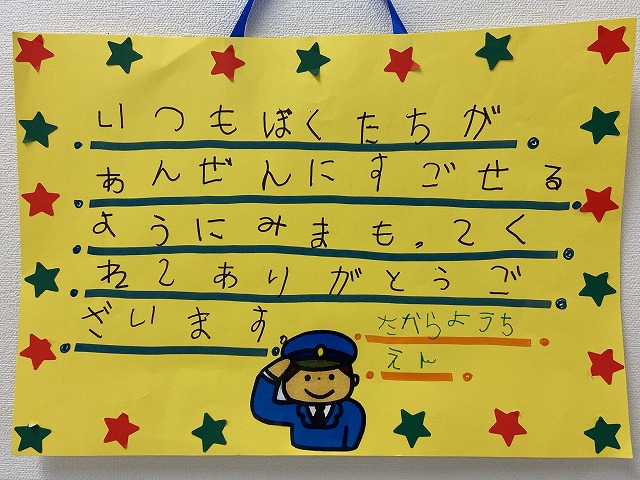 いつもぼくたちが
あんぜんにすごせる
ようにみまもってく
れてありがとうご
ざいます。
たからようち
えん